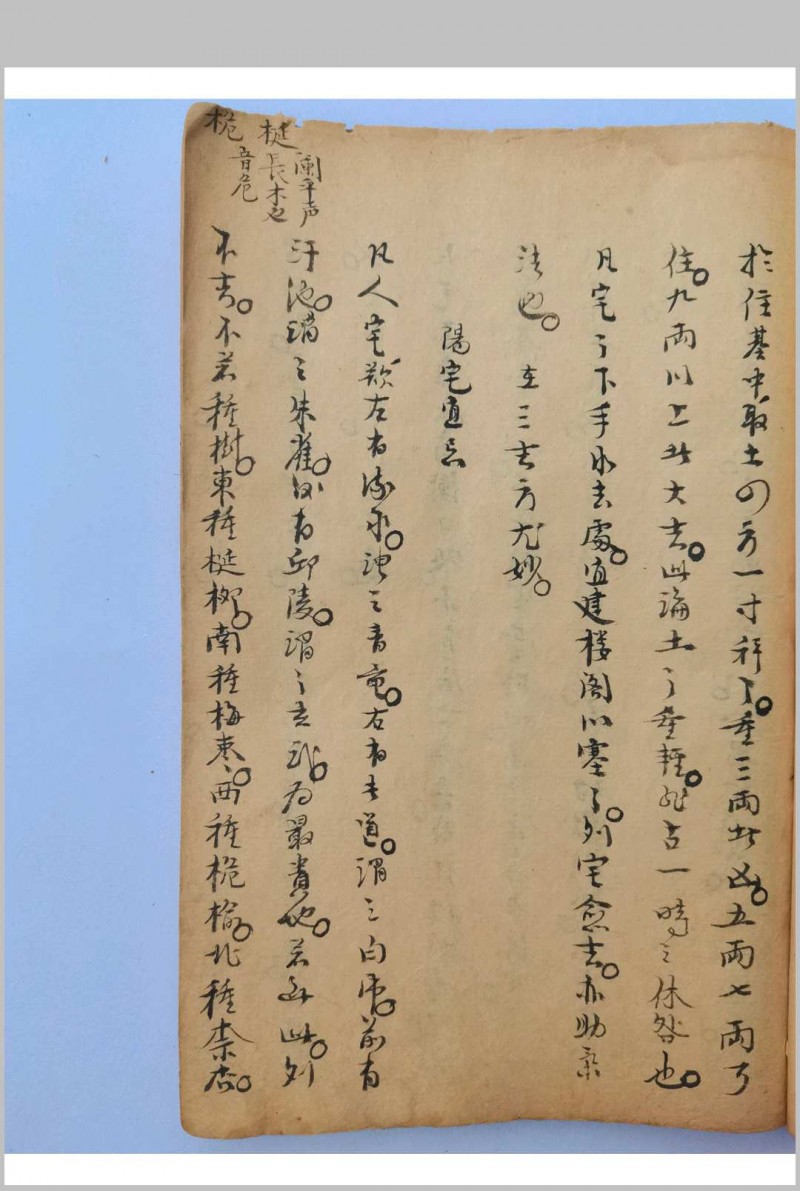 於住基中取土四方一寸秤之。重三兩者凶。五兩七兩可
住。九兩以上者大吉。此論土之重輕。非占一時之休咎也。
凡宅之下手水去處。宜建楼阁以塞之。則宅愈吉。亦助
法也。 在三吉方尤妙。
陽宅宜忌
凡人宅欲左有流水。謂之青竜。右有長道。謂之白虎。前有
汙池。謂之朱雀。後有邱陵。謂之玄武。为最貴也。若無此。則
不吉。不若種樹。東種梃柳。南種梅枣。西種桅榆。北種柰杏。
平声
梃長木也
桅音危